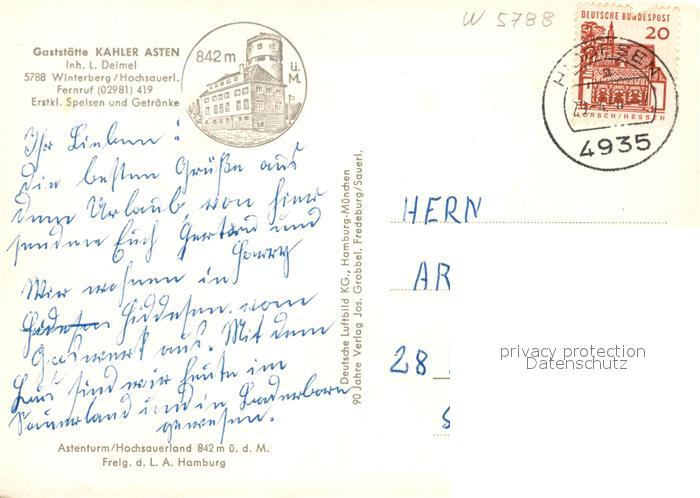 W 5788
Gaststätte KAHLER ASTEN
Inh. L. Deimel
5788 Winterberg/Hochsauerl.
Fernruf (02981) 419
Erstkl. Speisen und Getränke
842 m
ü.
M.
DEUTSCHE BUNDESPOST
20
LORSCH/HESSEN
4935
Ihr Lieben!
Die besten Grüße aus
dem Urlaub von hier
senden Euch Gertrud und
Harry
Wir wohnen in
Hiddesen vom
Gaswerk aus. Mit dem
Bus sind wir heute im
Sauerland und in Paderborn
gewesen.
Astenturm/Hochsauerland 842 m ü. d. M.
Freig. d. L. A. Hamburg
Deutsche Luftbild KG., Hamburg-München
90 Jahre Verlag Jos. Grobbel, Fredeburg/Sauerl.
HERN
AR
28
privacy protection
Datenschutz